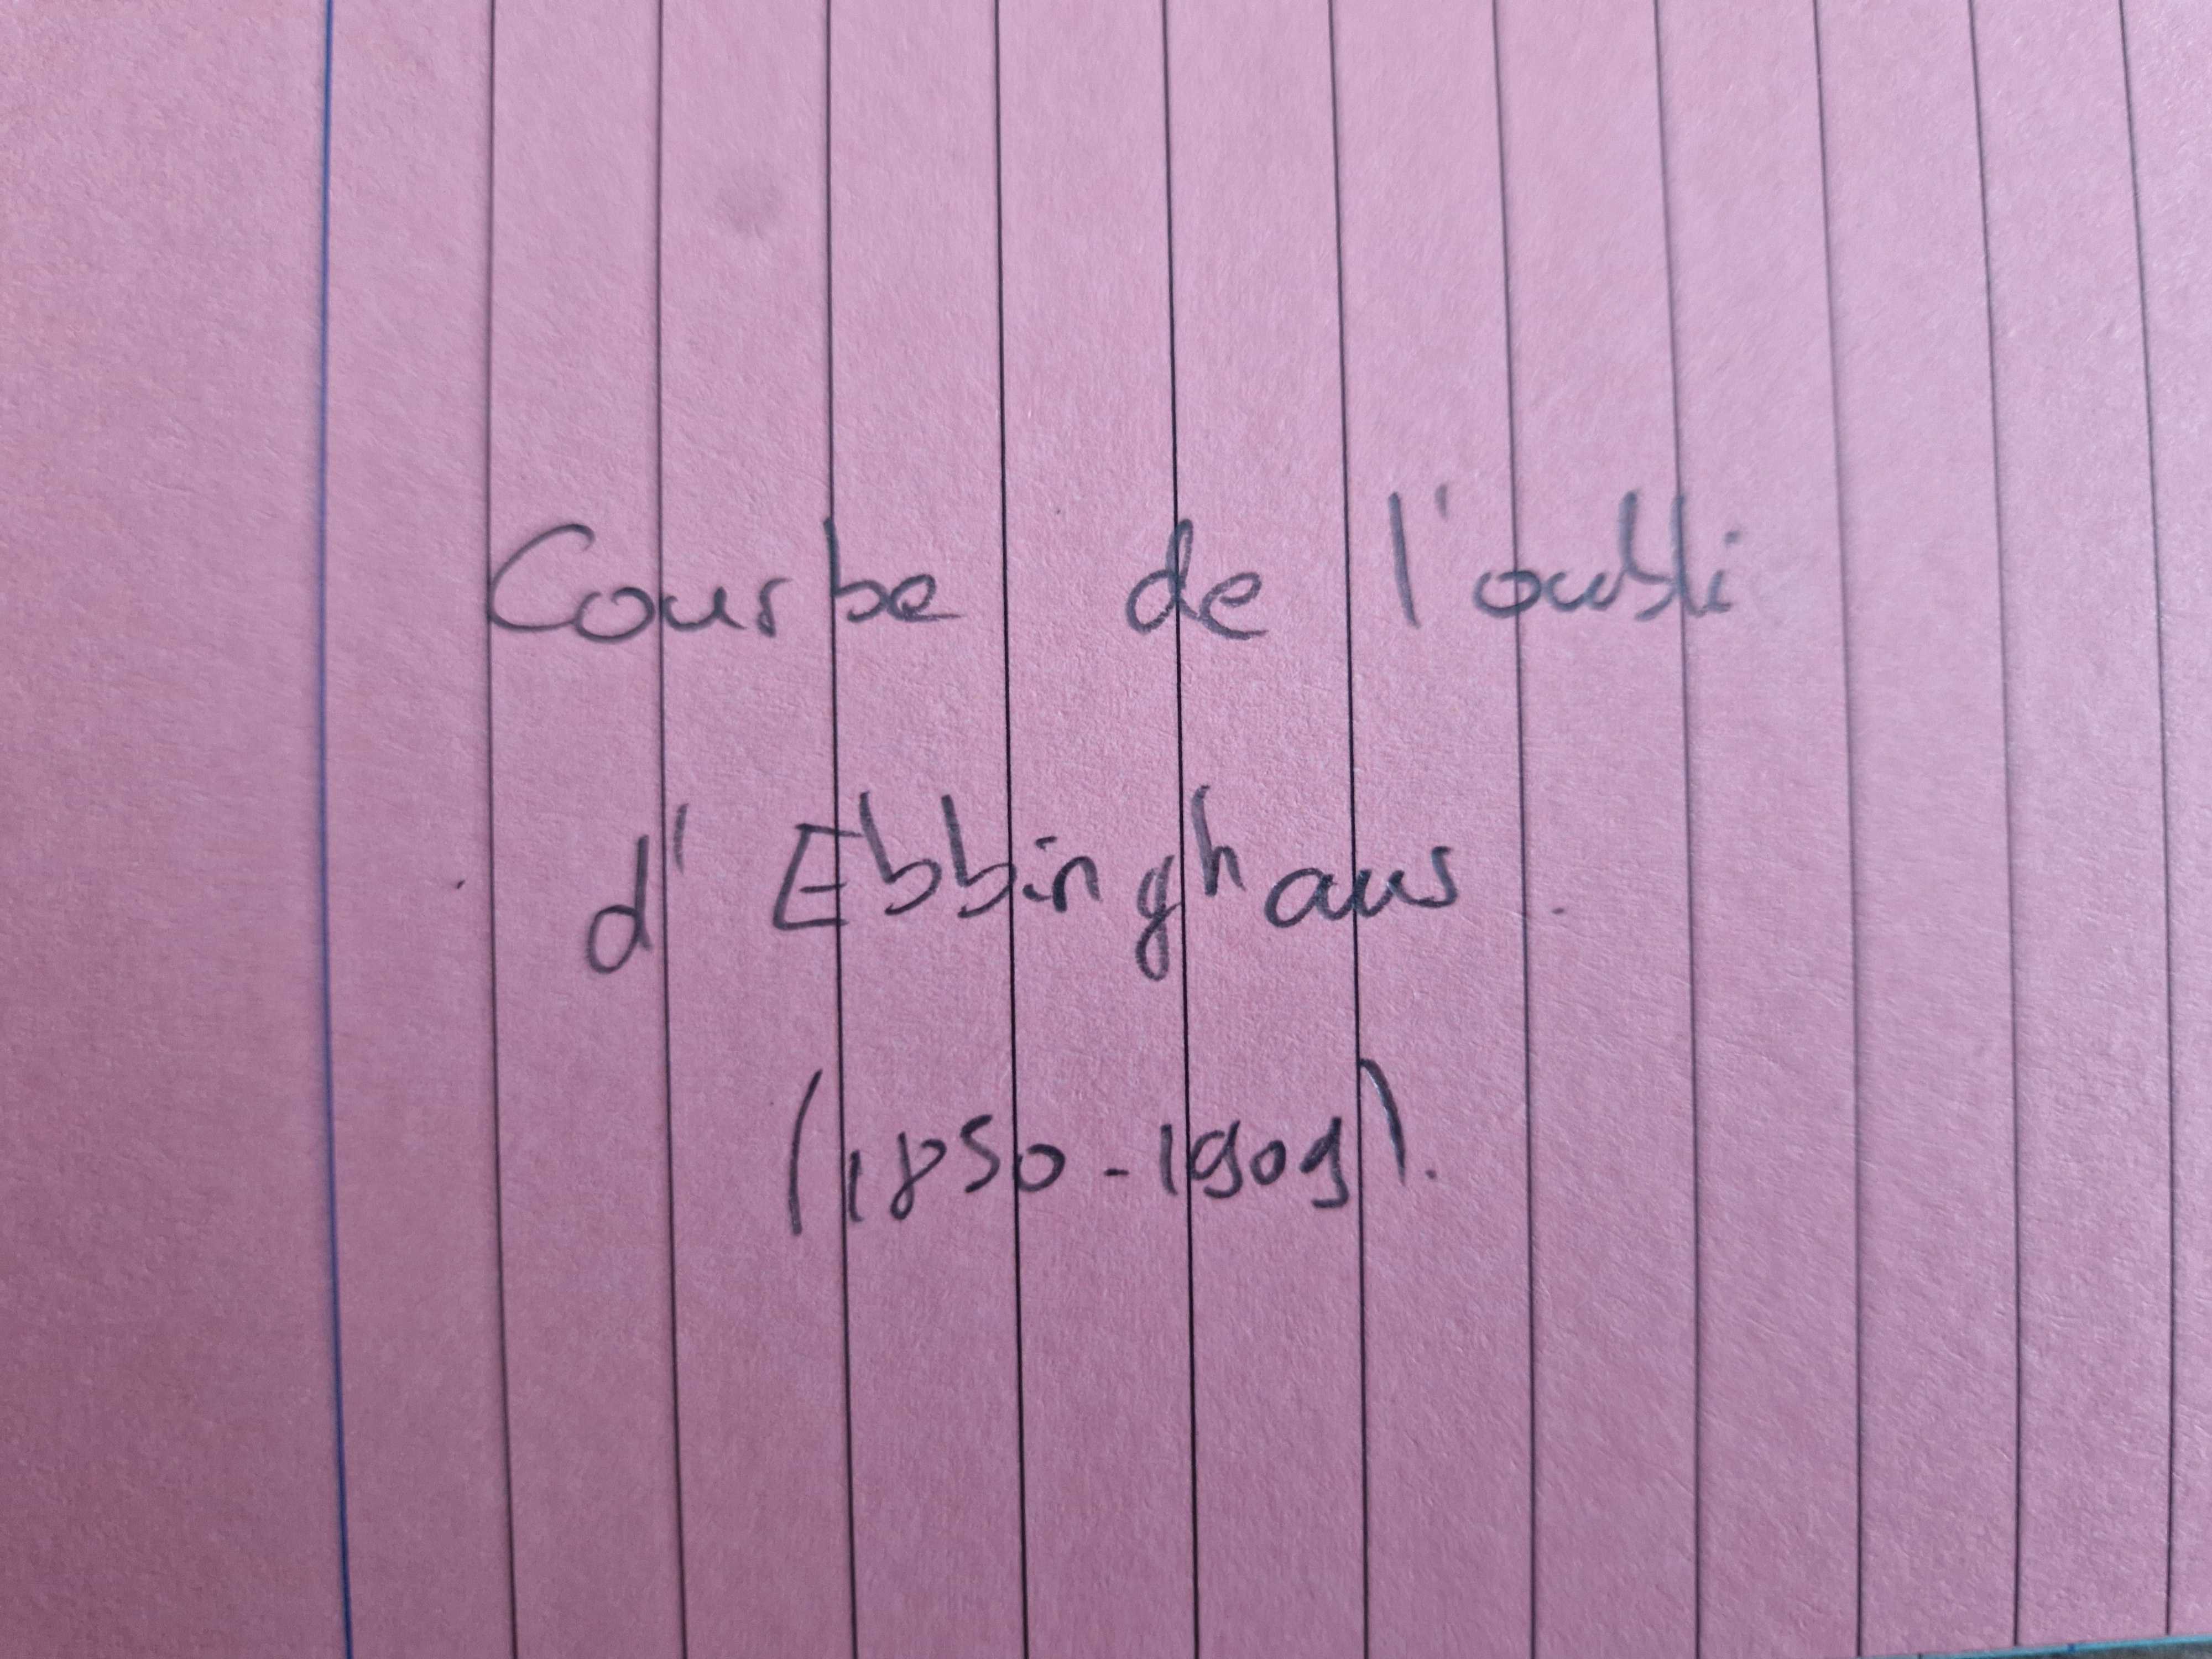 Courbe de l'oubli
d'Ebbinghaus.
(1850-1909).